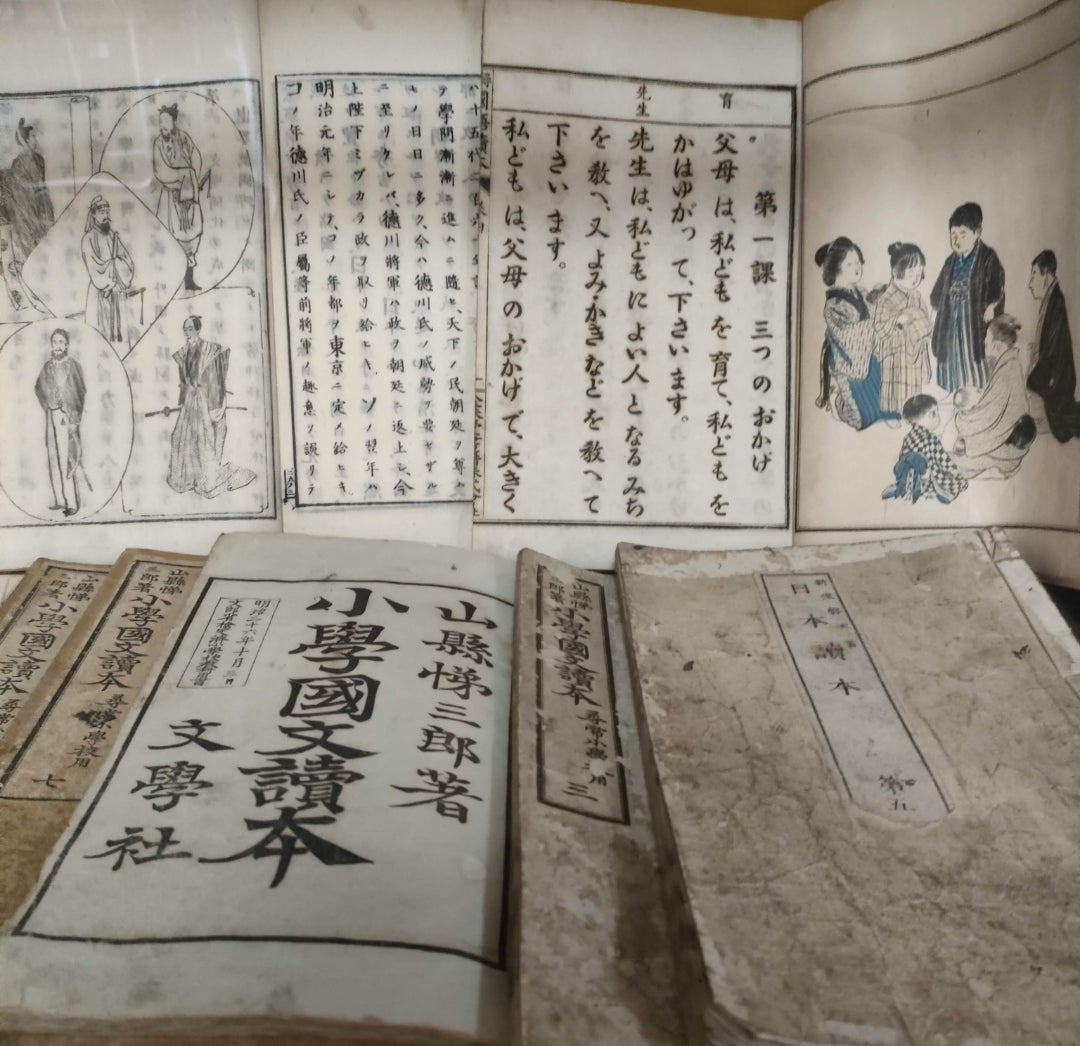 育
先生
第一課　三つのおかげ
父母は、私どもを育て、私どもを
かはゆがって、下さいます。
先生は、私どもによい人となるみち
を教へ、又よみ・かきなどを教へて
下さいます。
私どもは、父母のおかげで、大きく
テ學問漸漸ニ進ムニ隨ヒ、天下ノ民朝廷ヲ尊ム
キノ日日ニ多ク、今ハ德川氏ノ威勢ヲ
ニ至リタレバ、德川將軍ハ政ヲ朝廷ニ返上シ、今
上陛下ミヅカラ政ヲ取リ給ヒキ、ソノ翌年ハ
明治元年ニシテ、コノ年都ヲ東京ニ定メ給ヒキ
コノ年德川氏ノ臣屬將前將軍ノ趣意ヲ誤リテ
山縣悌三郎著
小學國文讀本
文學社
明治二十六年十月
山縣悌三郎著
小學國文讀本
尋常小學校用
七
山縣悌三郎著
小學國文讀本
尋常
山縣悌三郎著
小學國文讀本
尋常小學
三
日本讀本
第五